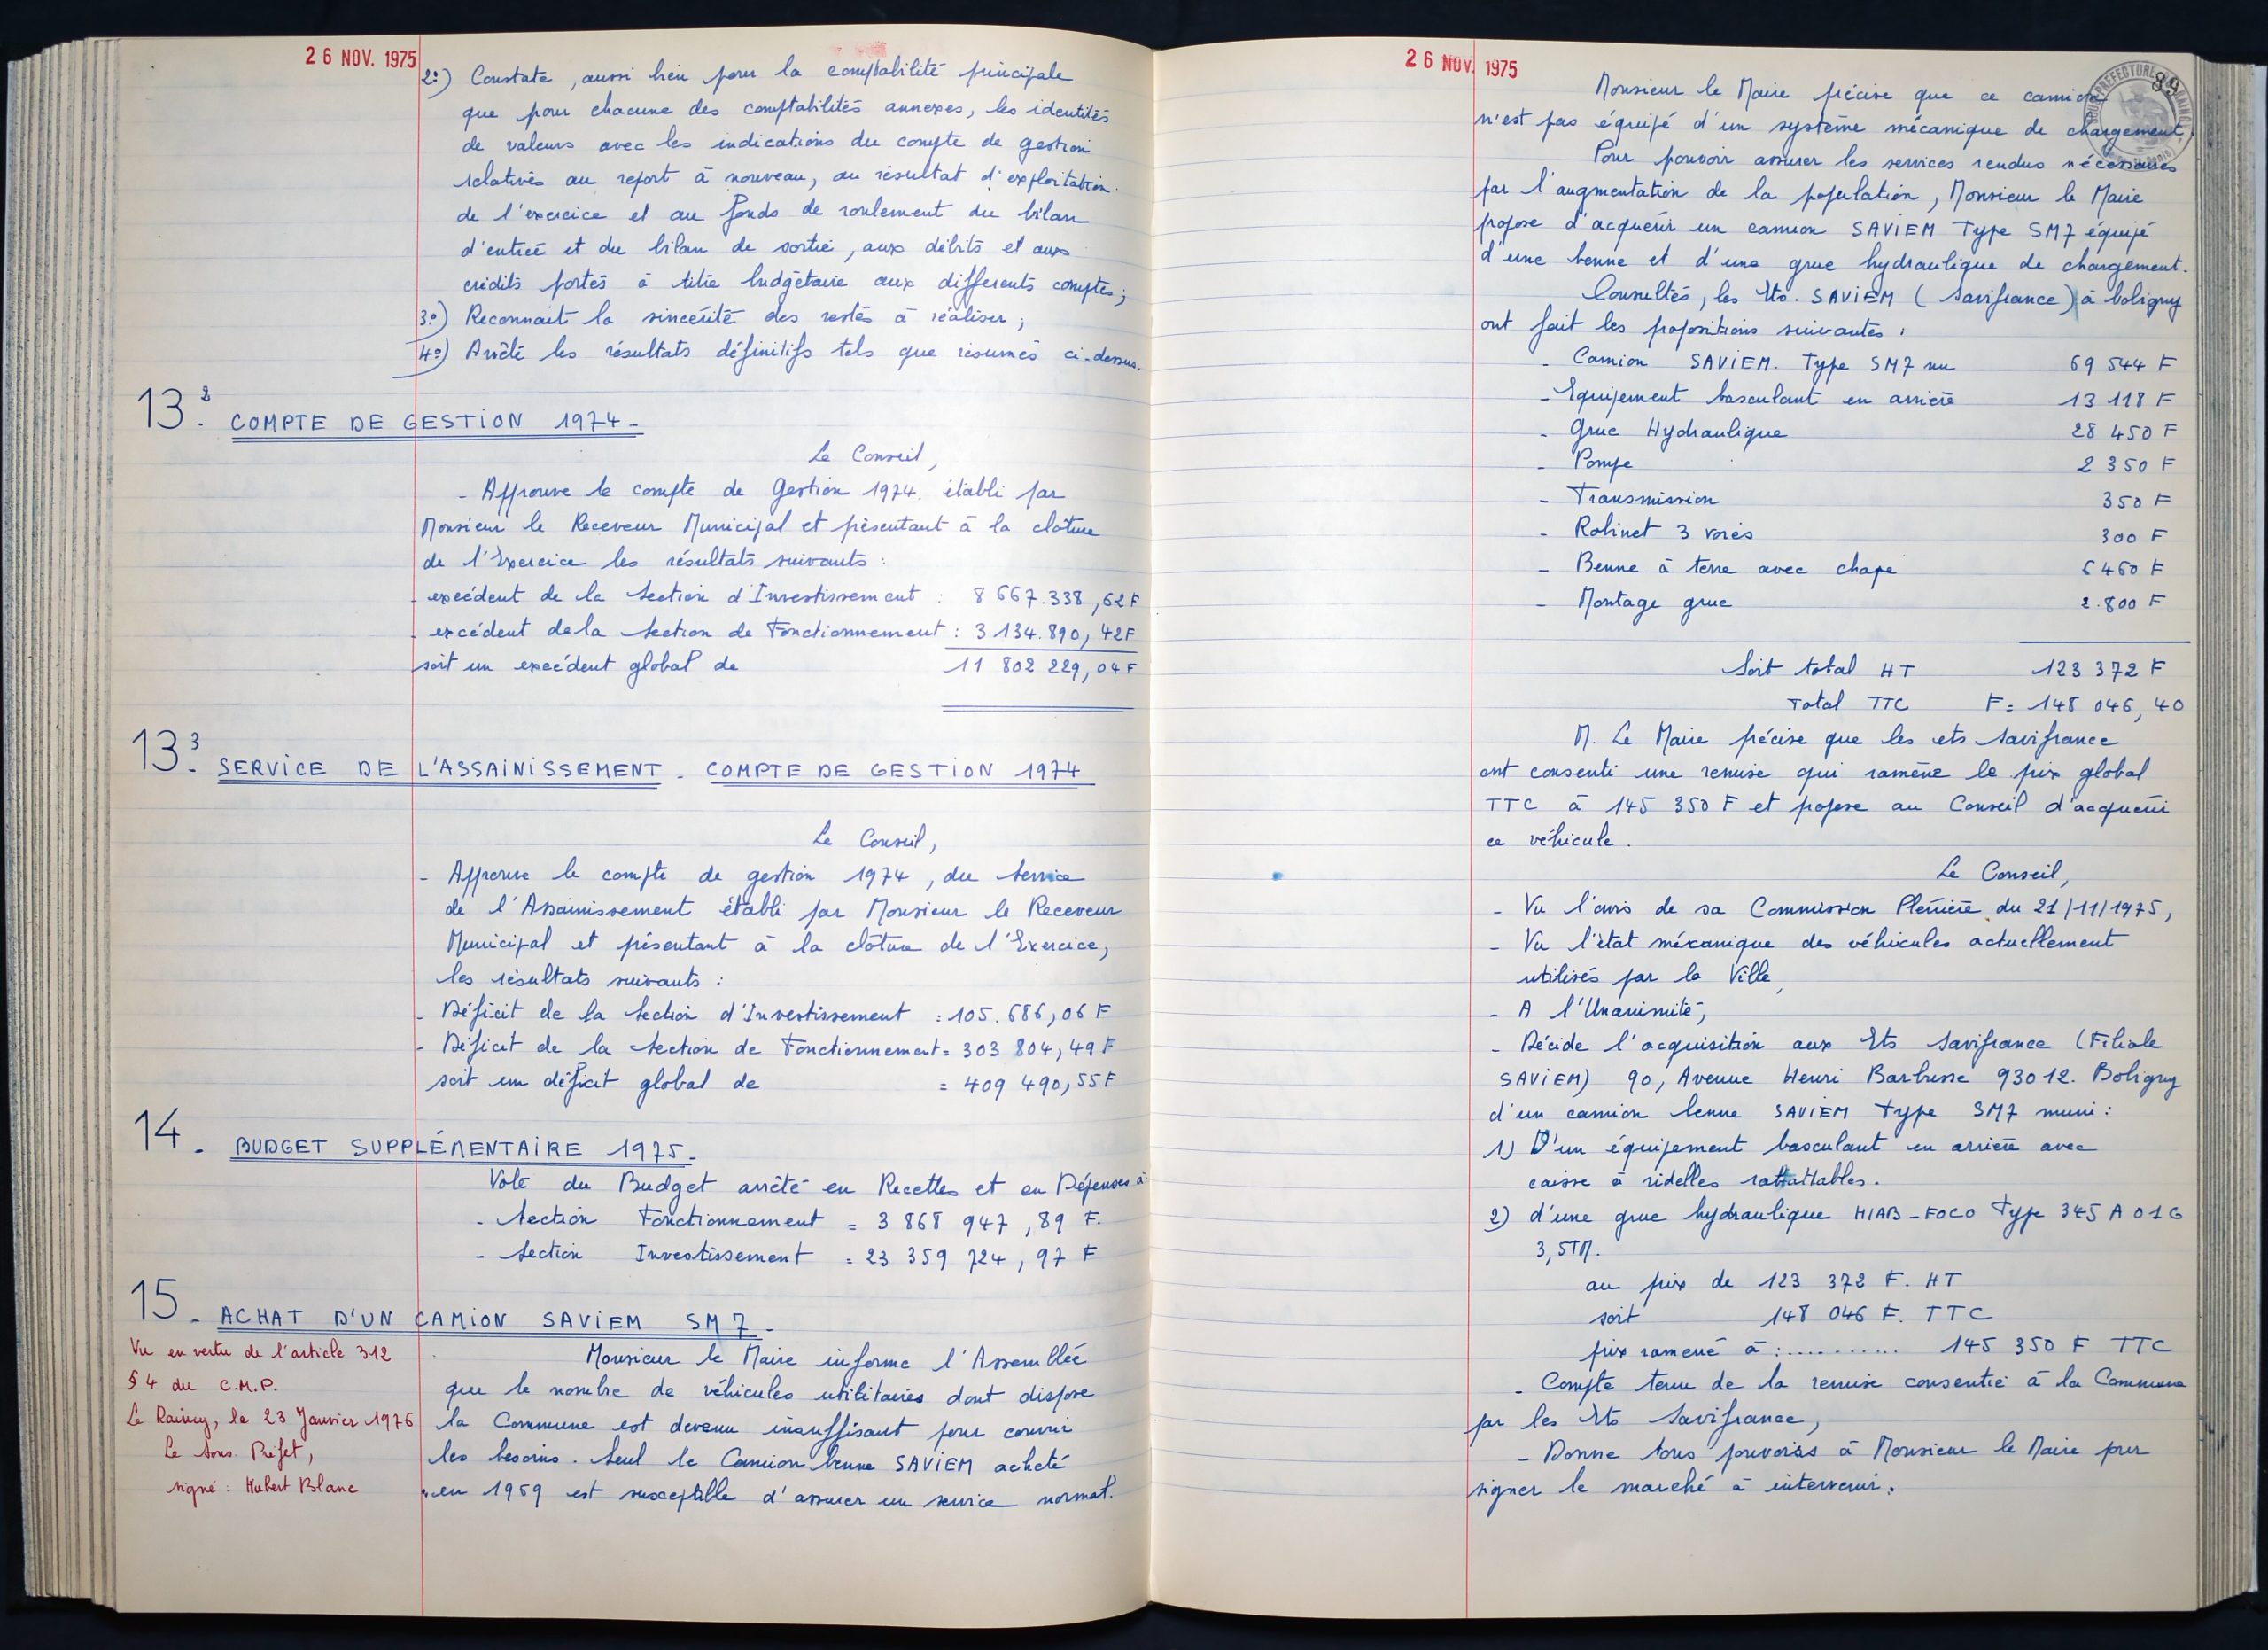 26 NOV. 1975
2º) Constate, aussi bien pour la comptabilité principale
que pour chacune des comptabilités annexes, les identités
de valeurs avec les indications du compte de gestion
relatives au report à nouveau, au résultat d'exploitation
de l'exercice et au fonds de roulement du bilan
d'entrée et du bilan de sortie, aux débits et aux
crédits portés à titre budgétaire aux différents comptes;
3º) Reconnait la sincérité des restes à réaliser;
4º) Arrêté les résultats définitifs tels que résumés ci-dessus.
13². COMPTE DE GESTION 1974-
Le Conseil,
- Approuve le compte de Gestion 1974 établi par
Monsieur le Receveur Municipal et présentant à la clôture
de l'Exercice les résultats suivants :
- excédent de la Section d'Investissement : 8 667.338,62F
- excédent de la Section de Fonctionnement : 3 134.890,42F
soit un excédent global de 11 802 229,04F
13³. SERVICE DE L'ASSAINISSEMENT - COMPTE DE GESTION 1974
Le Conseil,
- Approuve le compte de gestion 1974, du Service
de l'Assainissement établi par Monsieur le Receveur
Municipal et présentant à la clôture de l'Exercice,
les résultats suivants :
- Déficit de la Section d'Investissement : 105.686,06 F
- Déficit de la Section de Fonctionnement = 303 804,49 F
soit un déficit global de = 409 490,55F
14. BUDGET SUPPLÉMENTAIRE 1975-
Vote du Budget arrêté en Recettes et en Dépenses à
- Section Fonctionnement = 3 868 947,89 F.
- Section Investissement = 23 359 724,97 F
15. ACHAT D'UN CAMION SAVIEM SM7-
Vu en vertu de l'article 312
§4 du C.M.P.
Le Raincy, le 23 Janvier 1976
Le Sous. Préfet,
signé : Hubert Blanc
Monsieur le Maire informe l'Assemblée
que le nombre de véhicules utilitaires dont dispose
la Commune est devenu insuffisant pour couvrir
les besoins. Seul le Camion benne SAVIEM acheté
en 1969 est susceptible d'assurer un service normal.
26 NOV. 1975
89
Monsieur le Maire précise que ce camion
n'est pas équipé d'un système mécanique de chargement.
Pour pouvoir assurer les services rendus nécessaires
par l'augmentation de la population, Monsieur le Maire
propose d'acquérir un camion SAVIEM Type SM7 équipé
d'une benne et d'une grue hydraulique de chargement.
Consultés, les Ets. SAVIEM (Savifrance) à bobigny
ont fait les propositions suivantes :
- Camion SAVIEM. Type SM7 nu 69 544 F
- Equipement basculant en arrière 13 118 F
- Grue Hydraulique 28 450 F
- Pompe 2 350 F
- Transmission 350 F
- Robinet 3 voies 300 F
- Benne à terre avec chape 6 460 F
- Montage grue 2.800 F
Soit total HT 123 372 F
Total TTC F= 148 046,40
M. Le Maire précise que les ets Savifrance
ont consenti une remise qui ramène le prix global
TTC à 145 350 F et propose au Conseil d'acquérir
ce véhicule.
Le Conseil,
- Vu l'avis de sa Commission Plénière du 21/11/1975,
- Vu l'état mécanique des véhicules actuellement
utilisés par la Ville,
- A l'Unanimité,
- Décide l'acquisition aux Ets Savifrance (Filiale
SAVIEM) 90, Avenue Henri Barbusse 93012. Bobigny
d'un camion benne SAVIEM type SM7 muni :
1) D'un équipement basculant en arrière avec
caisse à ridelles rabattables.
2) d'une grue hydraulique HIAB-FOCO Type 345 A 01G
3,5TM.
au prix de 123 372 F. HT
soit 148 046 F. TTC
prix ramené à :........... 145 350 F TTC
- Compte tenu de la remise consentie à la Commune
par les Ets Savifrance,
- Donne tous pouvoirs à Monsieur le Maire pour
signer le marché à intervenir.